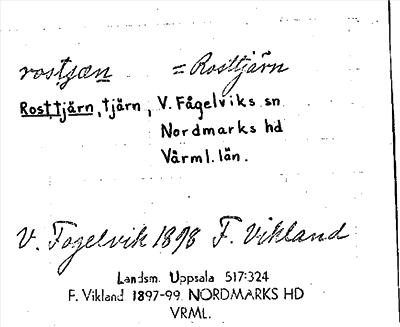 rostjæn = Rosttjärn
Rosttjärn, tjärn, V. Fågelviks sn
Nordmarks hd
Värml. län.
V. Fogelvik 1898 F. Vikland
Landsm. Uppsala 517:324
F. Vikland 1897-99. NORDMARKS HD
VRML.